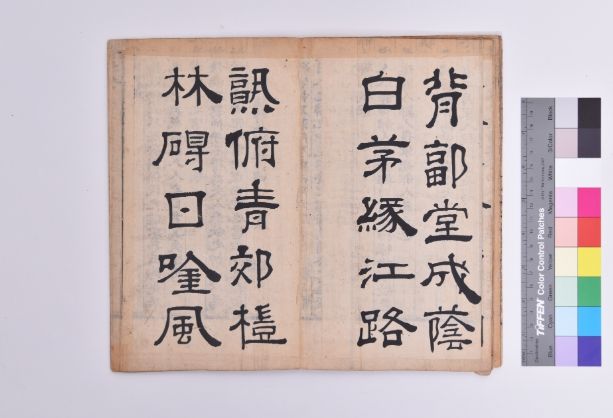 背郭堂成蔭
白茅緣江路
熟俯青郊榿
林碍日唫風
TIFFEN Color Control Patches
Blue
Cyan
Green
Yellow
Red
Magenta
White
3/Color
Black